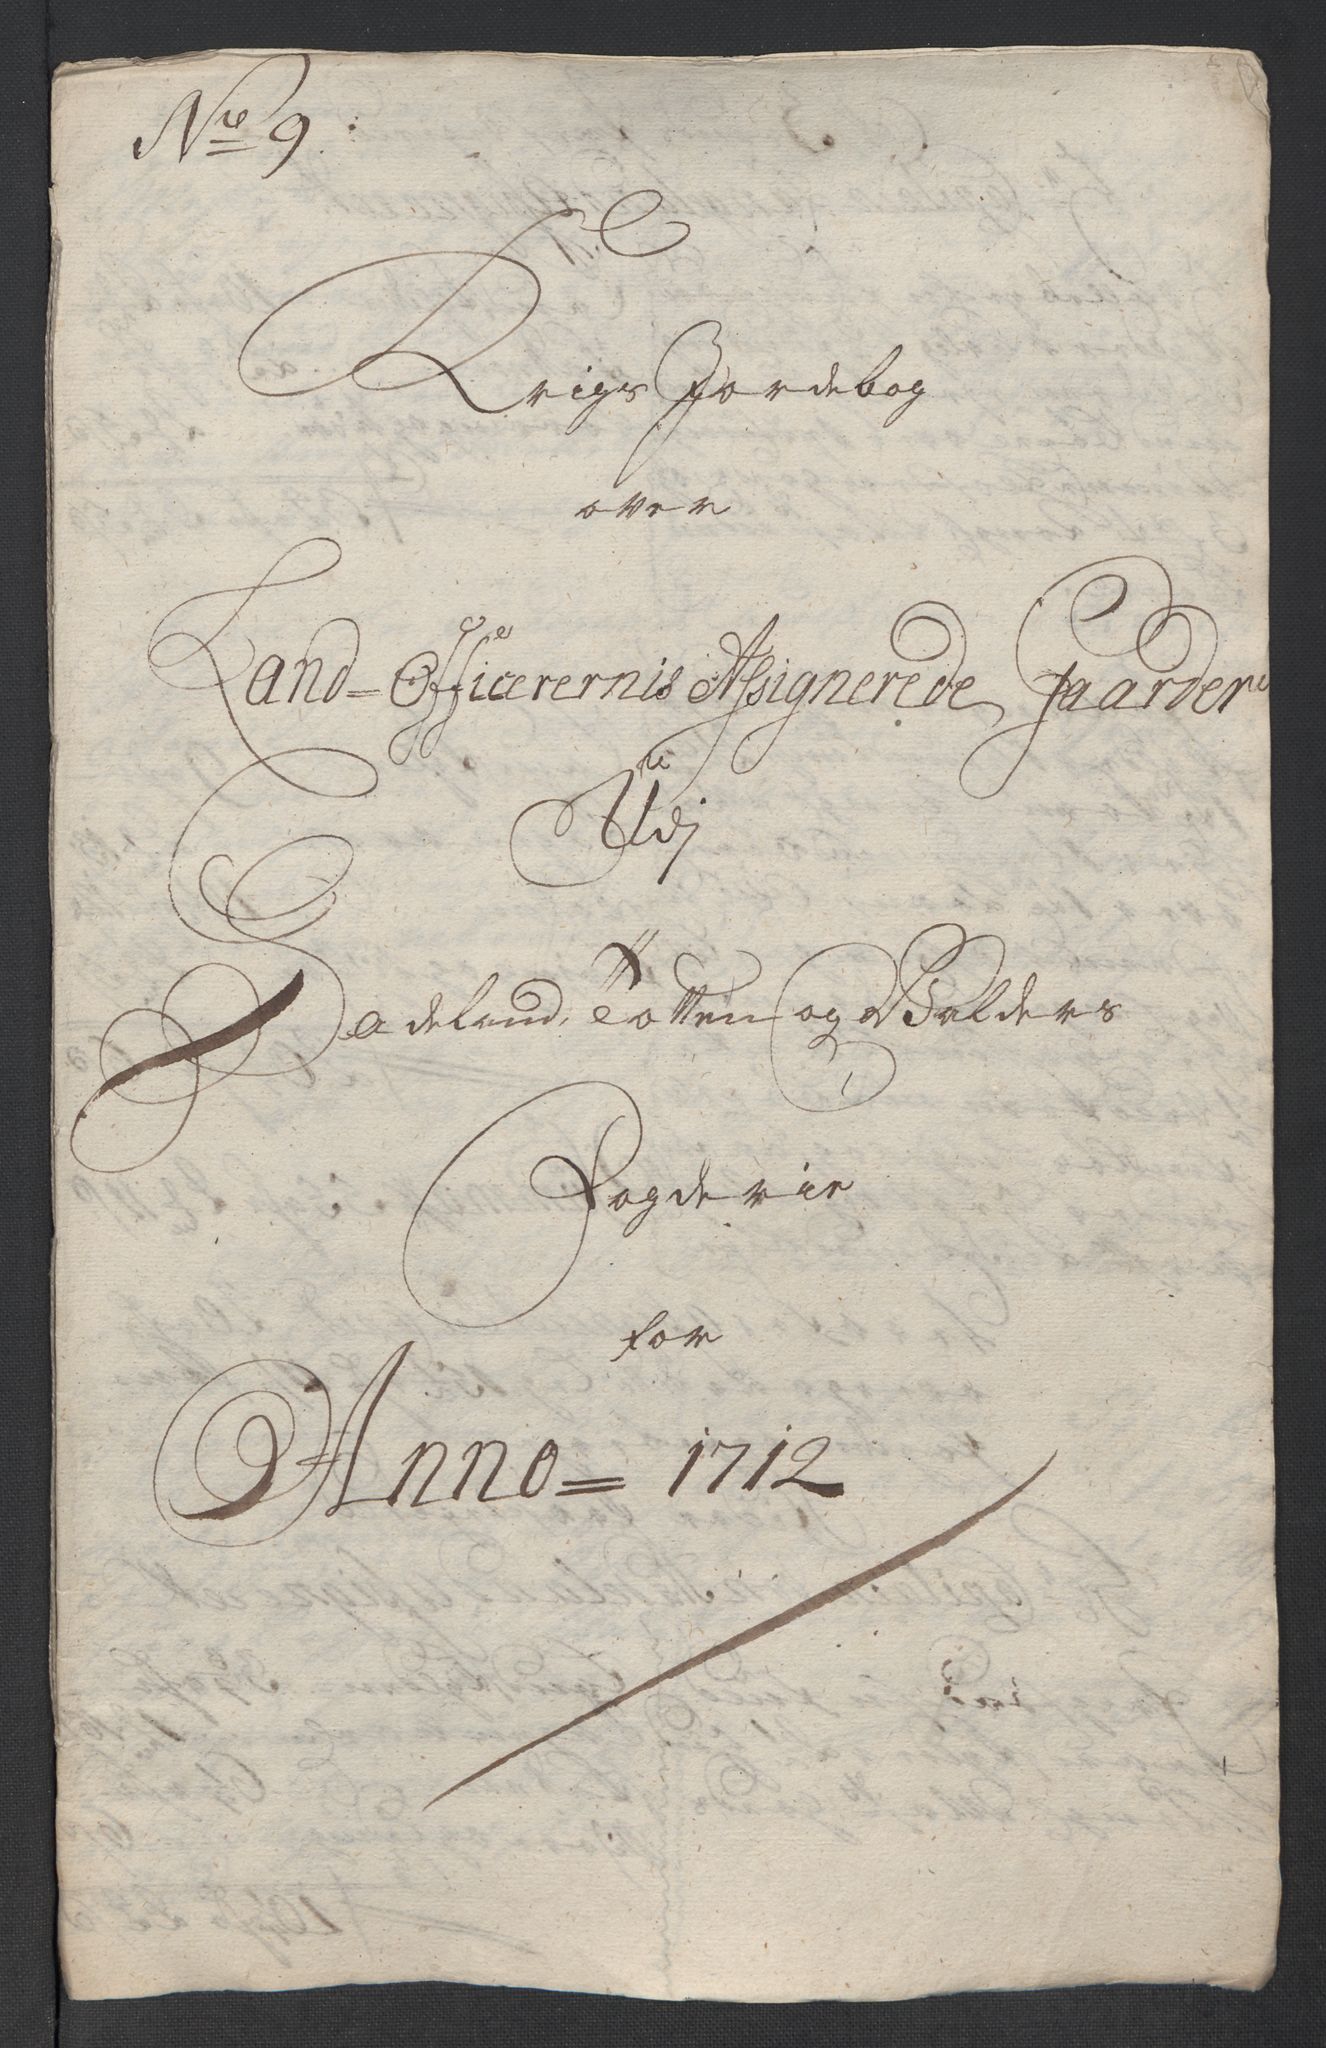 No 9:
Krigs Jordebog
over
Land-Officerernis Assignerede Gaarder
Udj
Hadeland, Totten og Walders
Fogderie
for
Anno = 1712